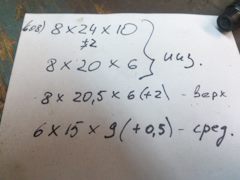 8 × 24 × 10
±2
8 × 20 × 6 } низ.
8 × 20,5 × 6 (+2) - верх
6 × 15 × 9 (+0,5) - сред.